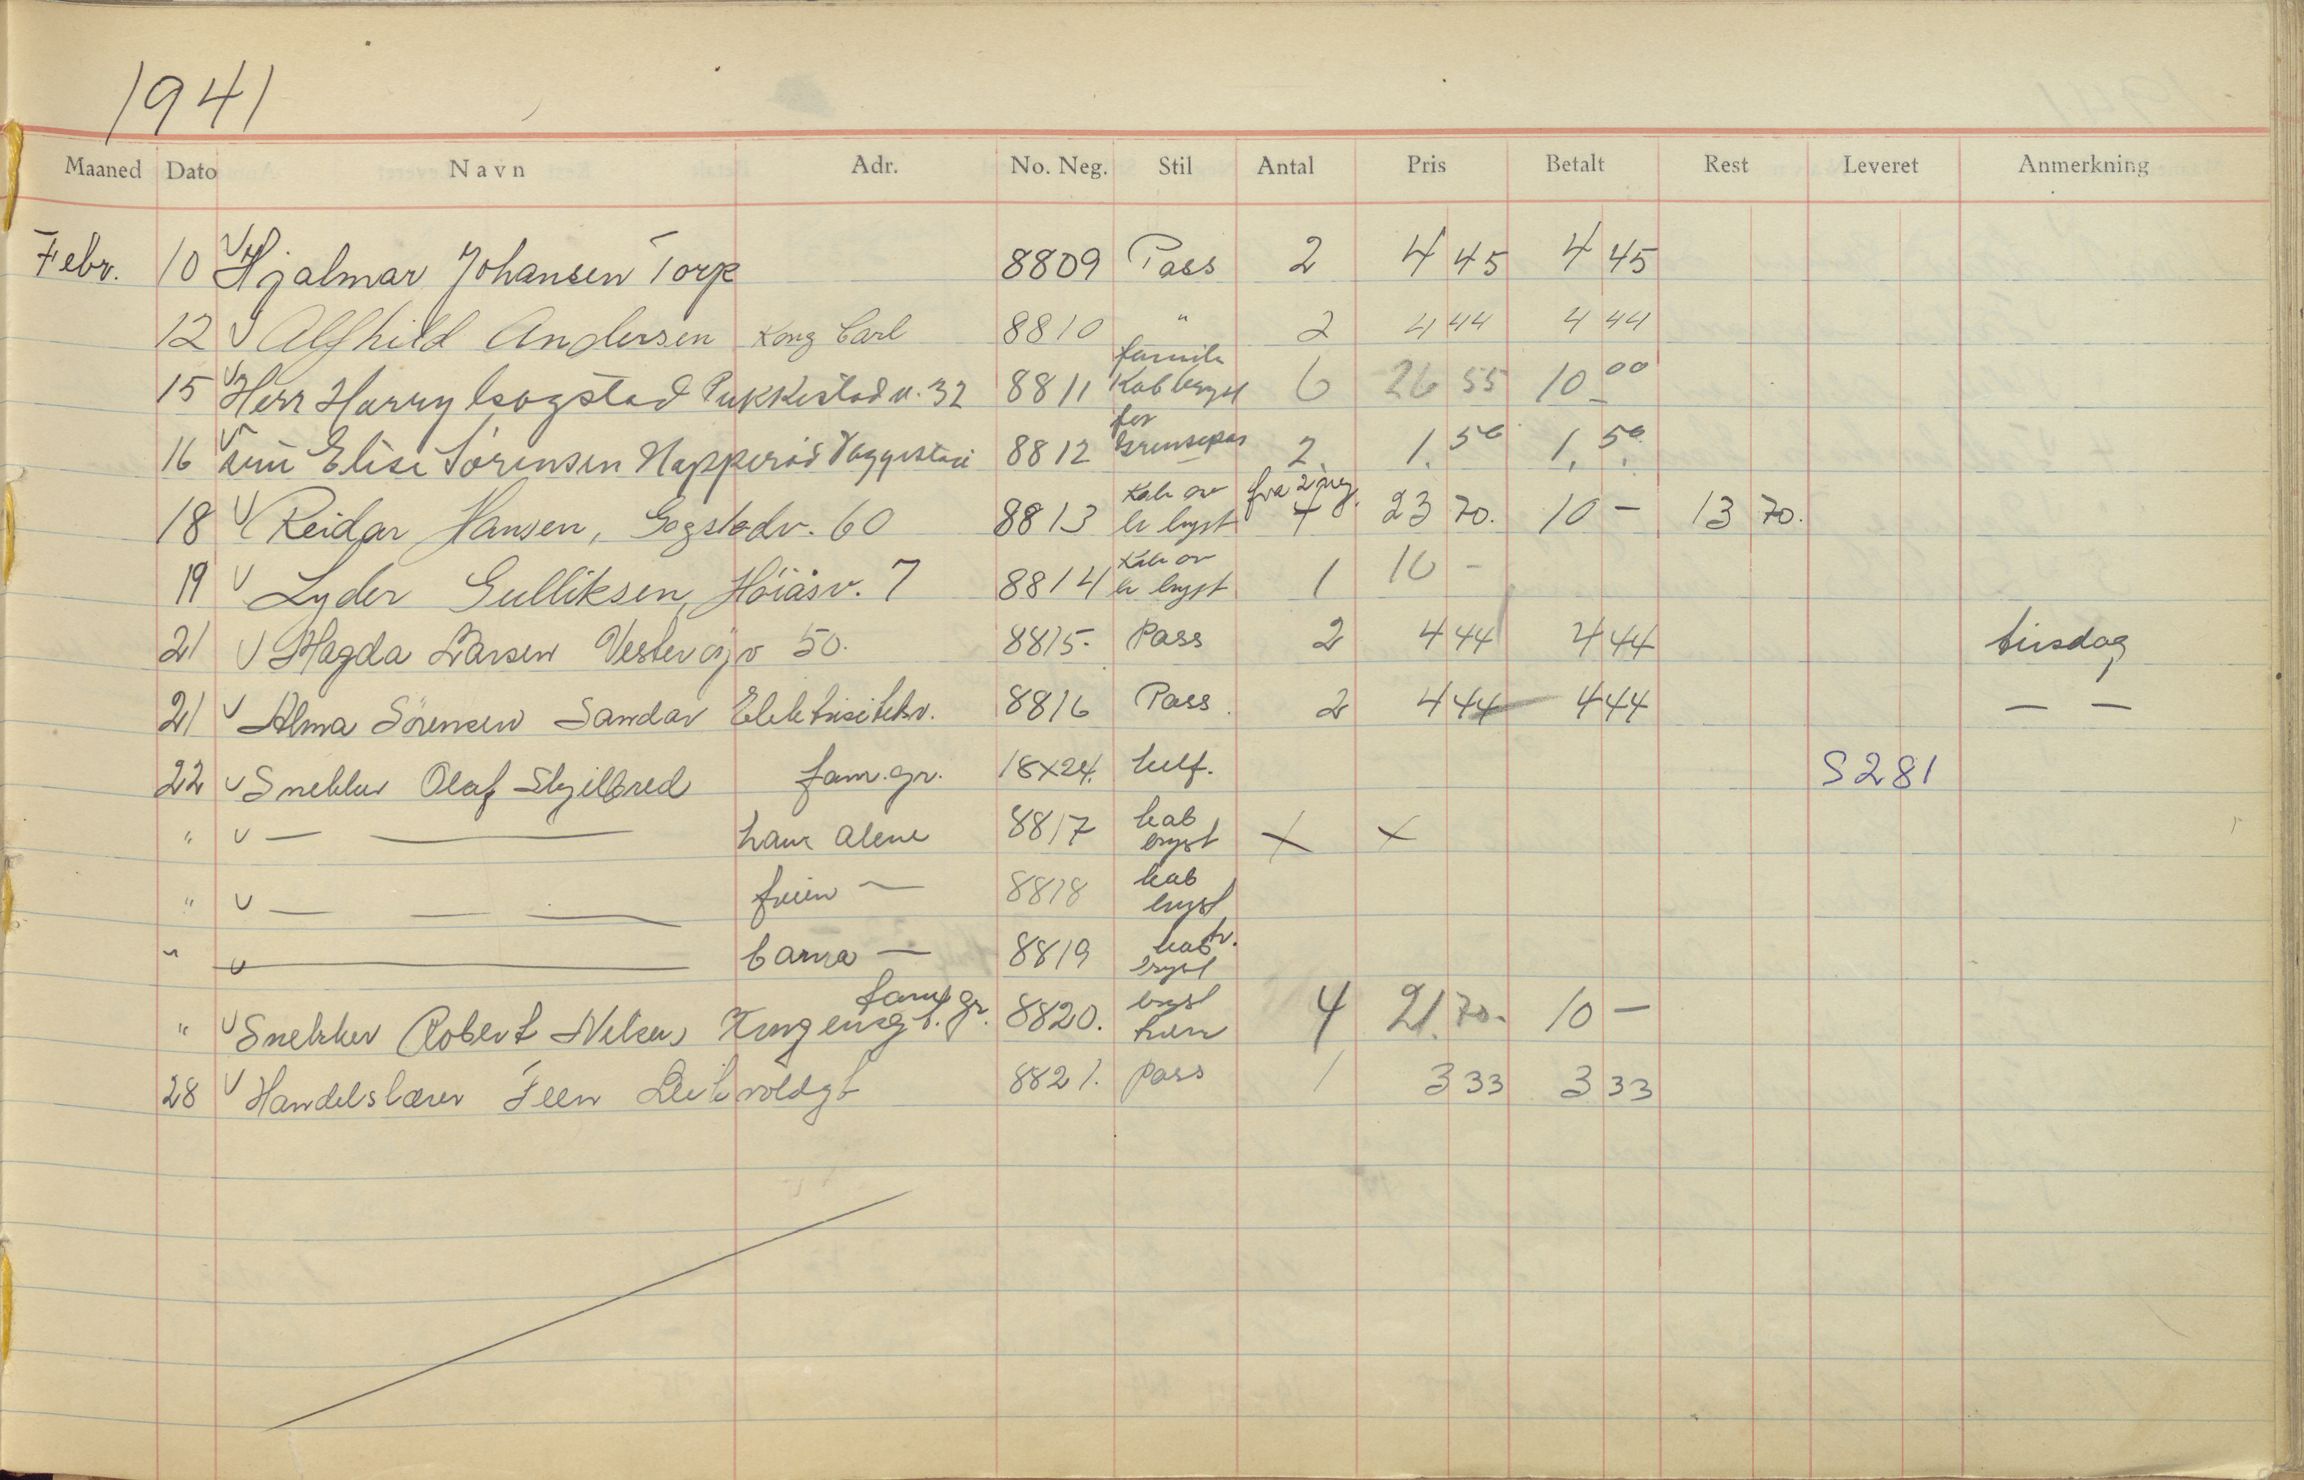 1941
Maaned Dato Navn Adr. No. Neg. Stil Antal Pris Betalt Rest Leveret Anmerkning
Febr. 10 Hjalmar Johansen Torp 8809 Pass 2 4 45 4 45
12 Alfhild Andersen Kong Carl 8810 " 2 4 44 4 44
familie
15 Herr Harry Gogstad Pukkestad v. 32 8811 Kab bryst 6 26 55 10 00
for
16 Elise Sörensen 8812 Grensepas 2 1.50 1.50
Kab ov fra 2 neg.
18 Reidar Hansen, Gogstadv. 60 8813 er bryst 4 23 70. 10 - 13 70.
Kab ov
19 Lyder Gulliksen, Höiåsv. 7 8814 er bryst 1 10 -
21 Magda Larsen Vesterøyv 50. 8815- Pass 2 4 44 4 44 tirsdag
21 Alma Sörensen Sandar Elektrisitetsv. 8816 Pass. 2 4 44 4 44 — —
22 Snekker Olaf Skjelbred fam. gr. 18x24. helf. S281
" — — hans alene 8817 kab bryst x x
" — — — fruen — 8818 kab bryst
" — barna — 8819 kab bryst
fam. gr.
" Snekker Robert Nilsen Kongensgt. 8820. bryst 4 21.70- 10 -
28 Handelslærer Feen Leikvoldgt 8821. pass 1 3 33 3 33